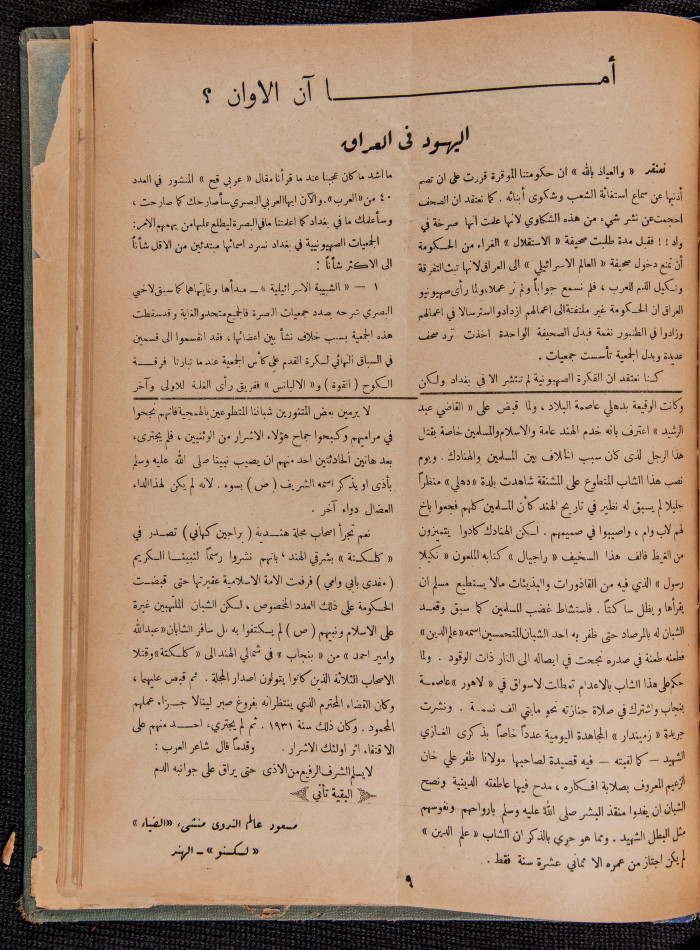 أما آن الاوان ؟
اليهود في العراق
نعتقد «والعياذ بالله» ان حكومتنا الموقرة قررت على ان تصم
أذنيها عن سماع استغاثة الشعب وشكوى أبنائه . كما نعتقد ان الصحف
احجمت عن نشر شيء من هذه الشكاوي لانها علمت أنها صرخة في
واد !! فقبل مدة طلبت صحيفة «الاستقلال» الغراء من الحكومة
أن تمنع دخول صحيفة «العالم الاسرائيلي» الى العراق لانها تبث التفرقة
وتكيل الذم للعرب ، فلم نسمع جواباً ولم نر عملا، ولما رأى صهيونيو
العراق ان الحكومة غير ملتفتة الى اعمالهم ازدادوا استرسالا في اعمالهم
وزادوا في الطنبور نغمة فبدل الصحيفة الواحدة اخذت ترد صحف
عديدة وبدل الجمعية تأسست جمعيات .
كنا نعتقد ان الفكرة الصهيونية لم تنتشر الا في بغداد ولكن
ما اشد ما كان عجبنا عند ما قرأنا مقال «عربي قح» المنشور في العدد
٤٠ من «العرب». والآن ايها العربي البصري سأصارحك كما صارحت ،
وسأعلمك ما في بغداد كما اعلمتنا ما في البصرة ليطلع عليها من يهمهم الامر:
الجمعيات الصهيونية في بغداد نسرد اسمائها مبتدئين من الاقل شأناً
الى الاكثر شأناً :
١ — «الشبيبة الاسرائيلية» — مبدأها وغايتها هما كما سبق لاخي
البصري شرحه بصدد جمعيات البصرة فالجميع متحدو الغاية وقد سقطت
هذه الجمعية بسبب خلاف نشأ بين اعضائها ، فقد انقسموا الى قسمين
في السباق النهائي لكرة القدم على كأس الجمعية عند ما تبارتا فرقة
الكوح (القوة) و«الاليانس» ففريق رأى الغلبة للاولى وآخر
وكانت الوقيعة بدهلي عاصمة البلاد ، ولما قبض على «القاضي عبد
الرشيد» اعترف بانه خدم الهند عامة والاسلام والمسلمين خاصة بقتل
هذا الرجل الذى كان سبب الخلاف بين المسلمين والهنادك . ويوم
نصب هذا الشاب المتطوع على المشنقة شاهدت بلدة «دهلي» منظراً
جليلا لم يسبق له نظير في تاريخ الهند كأن المسلمين كلهم فجعوا باخ
لهم لاب وام ، واصيبوا في صميمهم . لكن الهنادك كادوا يتميزون
من الغيظ فالف هذا السخيف «راجپال» كتابه الملعون «رنكيلا
رسول» الذي فيه من القاذورات والبذيئات مالا يستطيع مسلم ان
يقرأها ويظل ساكتاً . فاستشاط غضب المسلمين كما سبق وقعد
الشبان له بالمرصاد حتى ظفر به احد الشبان المتحمسين اسمه «علم الدين»
فطعنه طعنة في صدره نجحت في ايصاله الى النار ذات الوقود . ولما
حكم على هذا الشاب بالاعدام تعطلت لاسواق في «لاهور» عاصمة
بنجاب واشترك في صلاة جنازته نحو مايتي الف نسمة . ونشرت
جريدة «زميندار» المجاهدة اليومية عدداً خاصاً بذكرى الغازي
الشهيد — كما لقبته — فيه قصيدة لصاحبها مولانا ظفر علي خان
الزعيم المعروف بصلابة افكاره ، مدح فيها عاطفته الدينية ونصح
الشبان ان يفدوا منقذ البشر صلى الله عليه وسلم بارواحهم ونفوسهم
مثل البطل الشهيد . ومما هو حري بالذكر ان الشاب «علم الدين»
لم يكن اجتاز من عمره الا ثماني عشرة سنة فقط .
لا يرمين بعض المتنورين شباننا المتطوعين بالهمجية فانهم نجحوا
في مرامهم وكبحوا جماح هؤلاء الاشرار من الوثنيين ، فلم يجترىء
بعد هاتين الحادثتين احد منهم ان يصيب نبينا صلى الله عليه وسلم
بأذى او يذكر اسمه الشريف (ص) بسوء . لانه لم يكن لهذا الداء
العضال دواء آخر .
نعم تجرأ اصحاب مجلة هندية (براچين كهاني) تصدر في
«كلكتة» بشرقي الهند ، بانهم نشروا رسماً لنبينا الكريم
(مفدى بابي وامي) فرفعت الامة الاسلامية عقيرتها حتى قبضت
الحكومة على ذلك العدد المخصوص ، لكن الشبان الملتهبين غيرة
على الاسلام ونبيهم (ص) لم يكتفوا به بل سافر الشابان «عبدالله
وامير احمد» من «بنجاب» في شمالي الهند الى «كلكتة» وقتلا
الاصحاب الثلاثة الذين كانوا يتولون اصدار المجلة . ثم قبض عليهما ،
وكان القضاء المحترم الذي ينتظرانه بفروغ صبر لينالا جزاء عملهم
المحمود . وكان ذلك سنة ١٩٣١ . ثم لم يجترىء احد منهم على
الاقتفاء اثر اولئك الاشرار . وقدماً قال شاعر العرب :
لا يسلم الشرف الرفيع من الاذى حتى يراق على جوانبه الدم
البقية تأتي
مسعود عالم الندوى منشىء «الضياء»
«لكنو» — الهند
٩